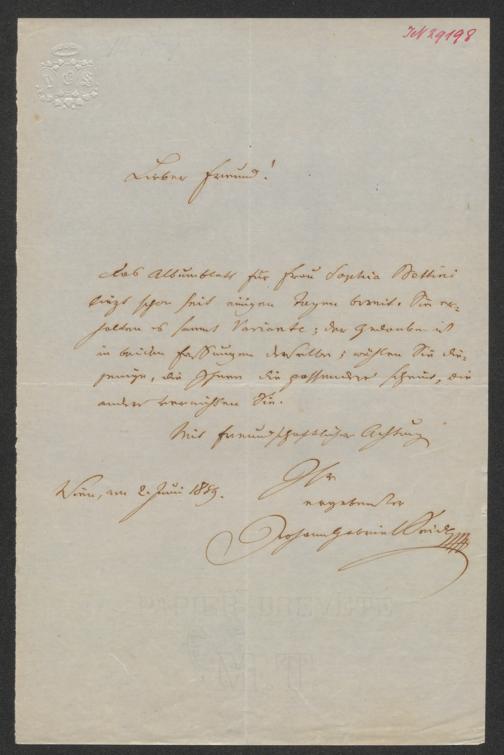 IN 29198
JGS
Lieber Freund!
Das Albumblatt für Frau Sophia Bettini
liegt schon seit einigen Tagen bereit. Sie er-
halten es sammt Variante; der Gedanke ist
in beiden Fassungen derselbe; wählen Sie die-
jenige, die Ihnen die passendere scheint, die
andere vernichten Sie.
Mit freundschaftlicher Achtung
Ihr
Wien, am 2. Juni 1859.
ergebenster
Johann Gabriel Seidl